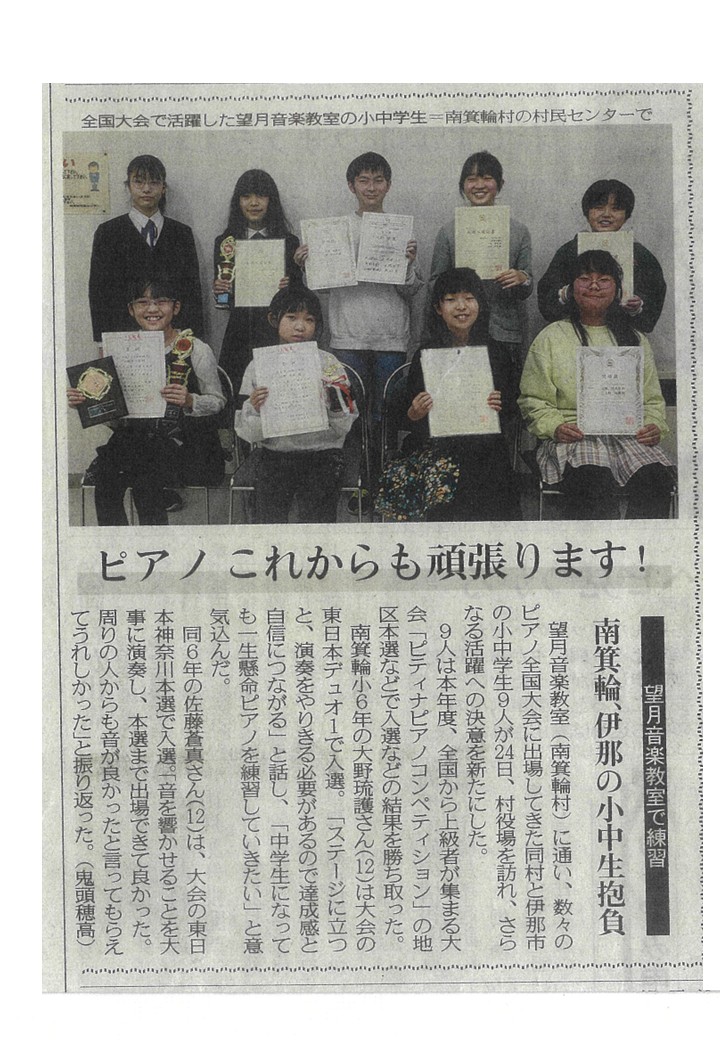 全国大会で活躍した望月音楽教室の小中学生＝南箕輪村の村民センターで
ピアノ これからも頑張ります！
望月音楽教室で練習
南箕輪、伊那の小中生抱負
望月音楽教室（南箕輪村）に通い、数々の
ピアノ全国大会に出場してきた同村と伊那市
の小中学生９人が24日、村役場を訪れ、さら
なる活躍への決意を新たにした。
９人は本年度、全国から上級者が集まる大
会「ピティナピアノコンペティション」の地
区本選などで入選などの結果を勝ち取った。
南箕輪小６年の大野琉護さん(12)は大会の
東日本デュオ１で入選。「ステージに立つ
と、演奏をやりきる必要があるので達成感と
自信につながる」と話し、「中学生になって
も一生懸命ピアノを練習していきたい」と意
気込んだ。
同６年の佐藤蒼真さん(12)は、大会の東日
本神奈川本選で入選。「音を響かせることを大
事に演奏し、本選まで出場できて良かった。
周りの人からも音が良かったと言ってもらえ
てうれしかった」と振り返った。（鬼頭穂高）